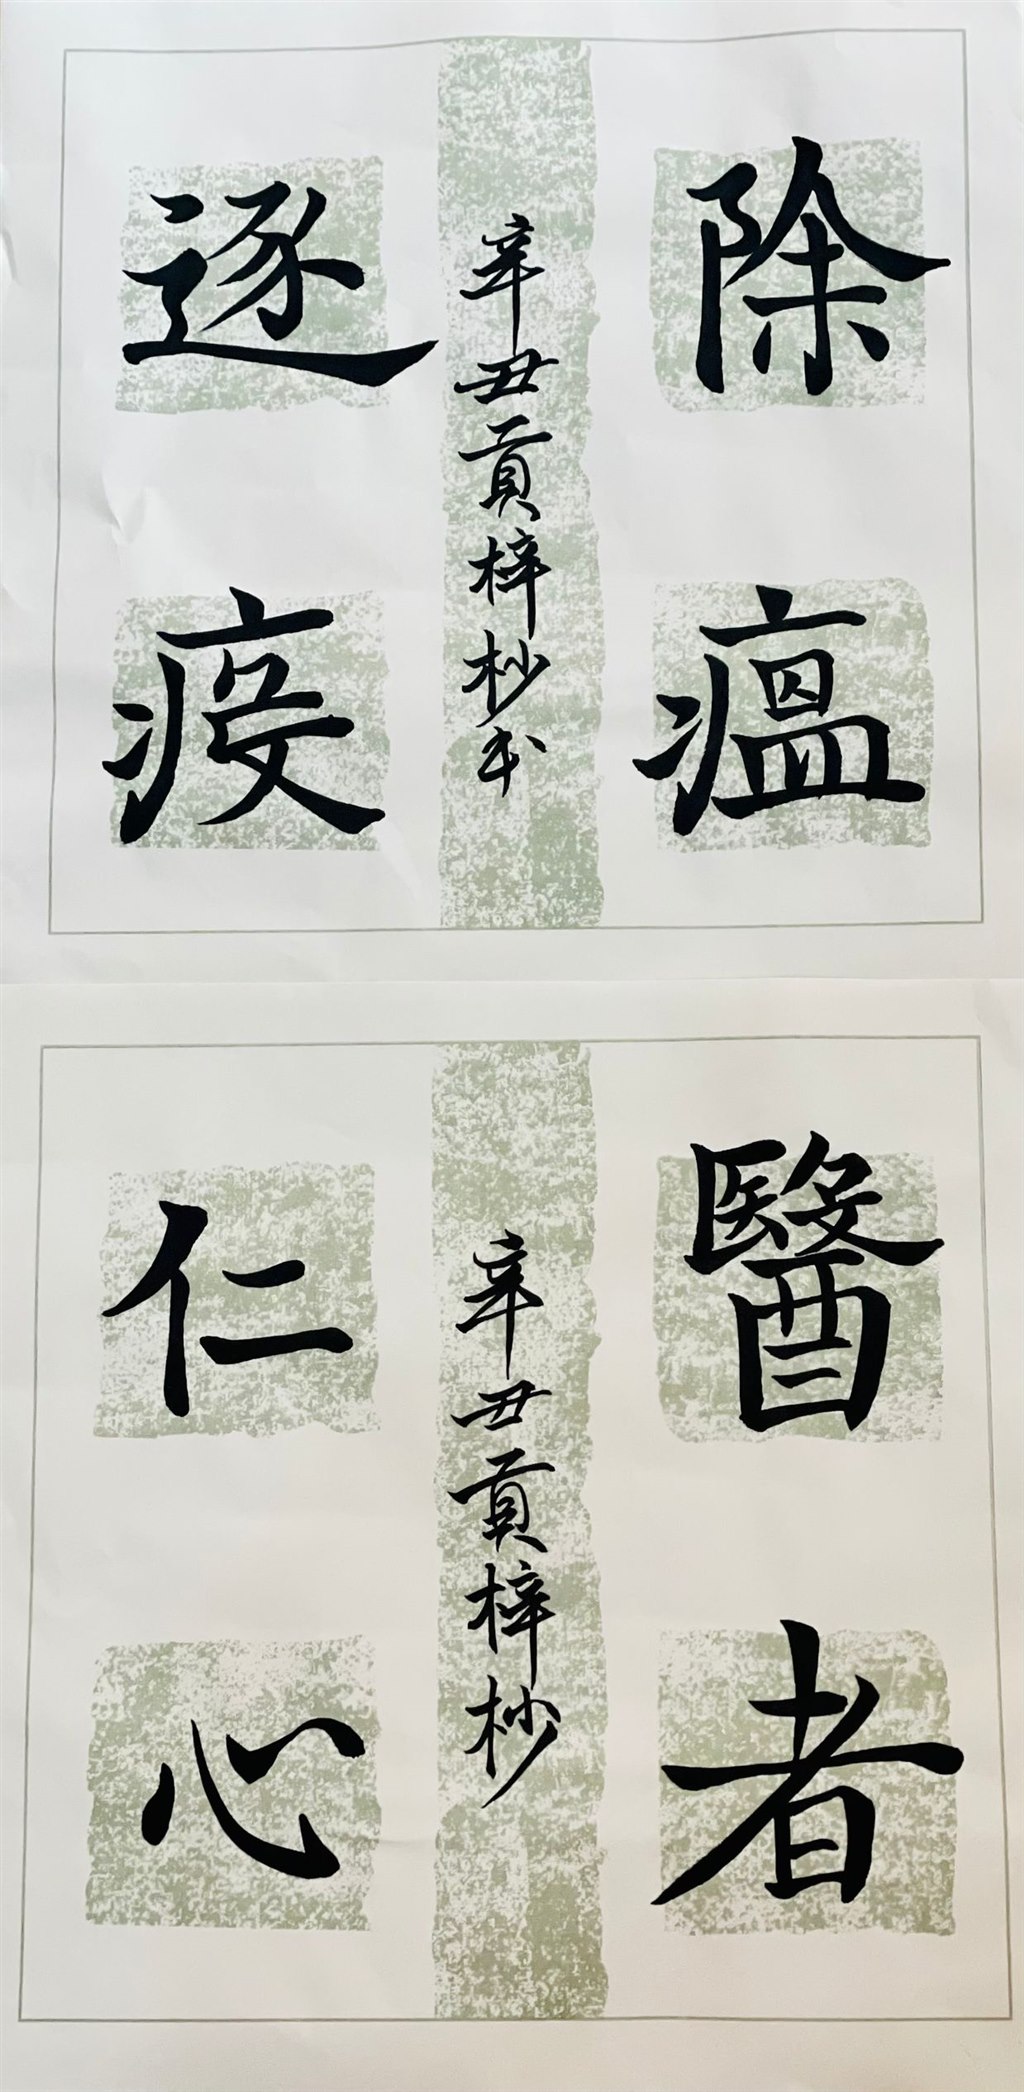 除瘟
辛丑贡梓杪书
逐疫
醫者
辛丑贡梓杪
仁心